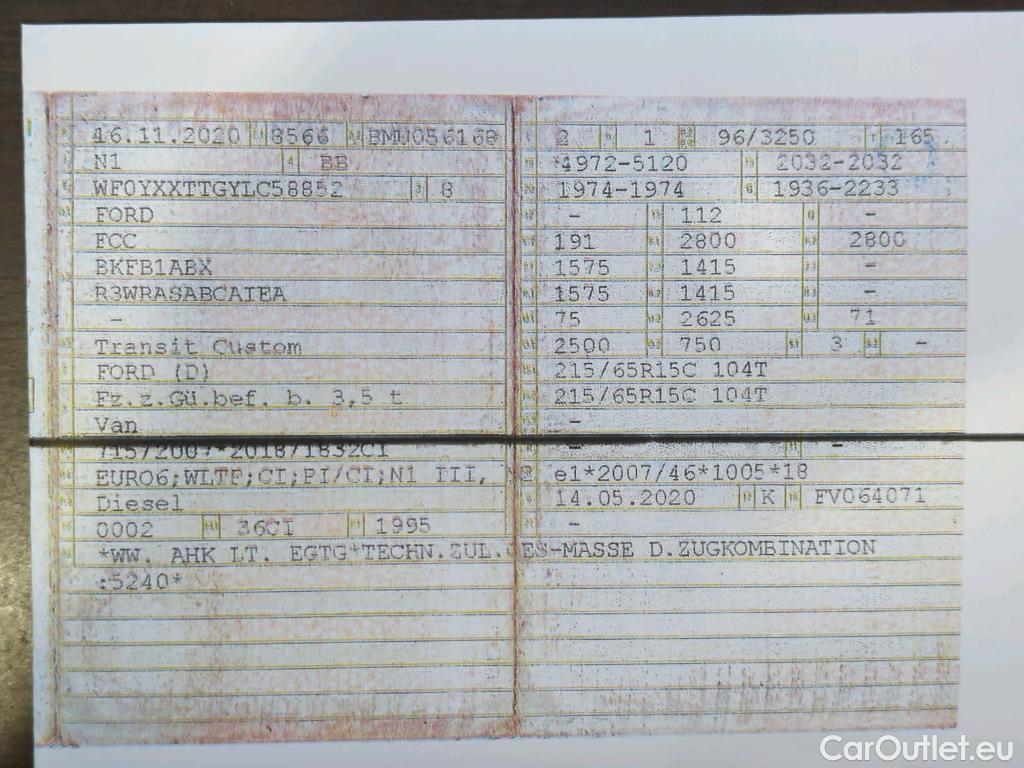 16.11.2020 8566 BMU056168
N1 BB
WF0YXXTTGYLC58852 8
FORD
FCC
BKFB1ABX
R3WRASABCAIEA
-
Transit Custom
FORD (D)
Fz.z.Gü.bef. b. 3,5 t
Van
715/2007*2018/1832CI
EURO6;WLTP;CI;PI/CI;N1 III,
Diesel
0002 36CI 1995
2 1 96/3250 165
*4972-5120 2032-2032
1974-1974 1936-2233
- 112 -
191 2800 2800
1575 1415 -
1575 1415 -
75 2625 71
2500 750 3 -
215/65R15C 104T
215/65R15C 104T
-
- -
e1*2007/46*1005*18
14.05.2020 K FV064071
-
*WW. AHK LT. EGTG*TECHN.ZUL.GES-MASSE D.ZUGKOMBINATION
:5240*
CarOutlet.eu